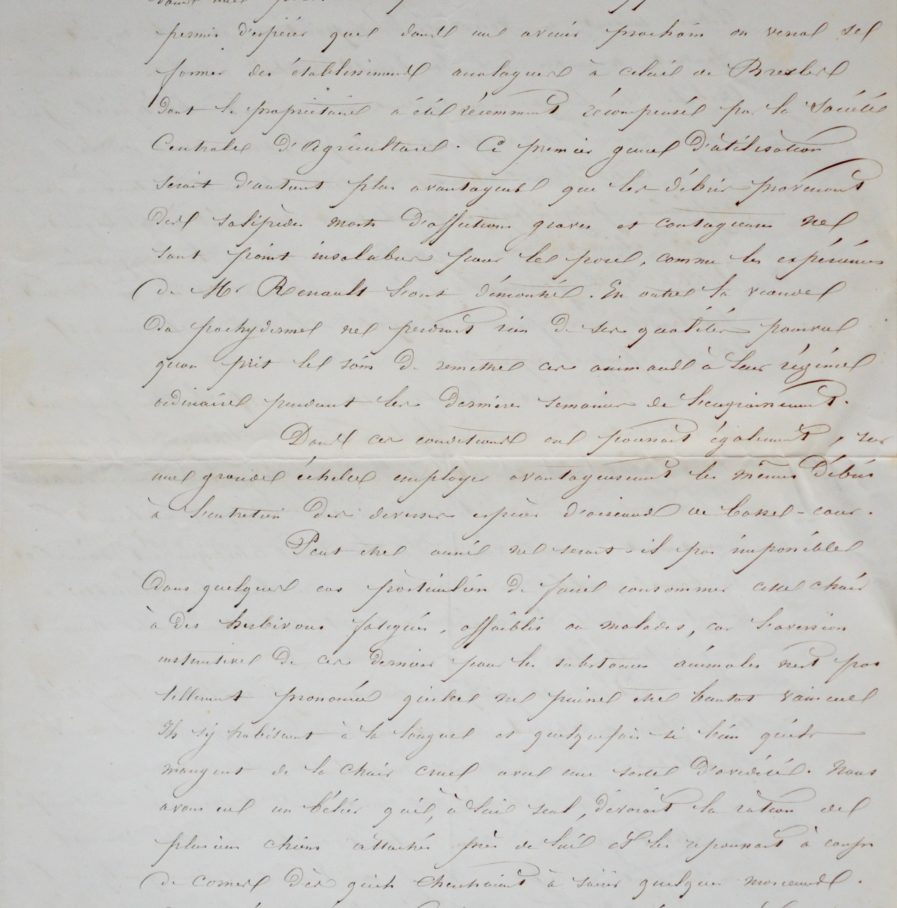 permis d'espérer que dans un avenir prochain on verra se
former des établissements analogues à celui de
dont le propriétaire a été récemment récompensé par la Société
Centrale d'Agriculture. Ce premier genre d'utilisation
serait d'autant plus avantageux que les débris provenant
des solipèdes morts d'affections graves et contagieuses ne
sont point insalubres pour le porc, comme les expériences
de Mr Renault l'ont démontré. En outre la viande
du pachyderme ne perdrait rien de ses qualités pourvu
qu'on prît le soin de remettre ces animaux à leur régime
ordinaire pendant les dernières semaines de l'engraissement.
Dans ces conditions on pourrait également, sur
une grande échelle employer avantageusement les mêmes débris
à l'entretien des diverses espèces d'oiseaux de basse-cour.
Peut être aussi ne serait-il pas impossible
dans quelques cas particuliers de faire consommer cette chair
à des herbivores fatigués, affaiblis ou malades, car l'aversion
instinctive de ces derniers pour les substances animales n'est pas
tellement prononcée qu'elle ne puisse être bientôt vaincue
Ils s'y habituent à la longue et quelquefois si bien qu'ils
mangent de la chair crue avec une sorte d'avidité. Nous
avons eu un bélier qui, à lui seul, dévorait la ration de
plusieurs chiens attachés près de lui et les repoussait à coups
de cornes dès qu'ils cherchaient à saisir quelques morceaux.